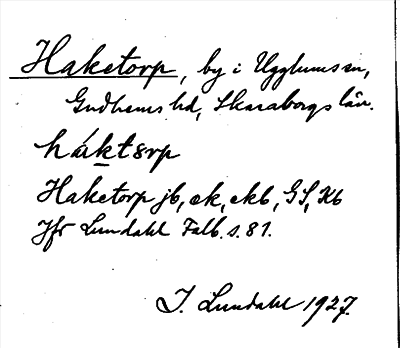 Haketorp, by i Ugglums sn,
Gudhems hd, Skaraborgs län.
háktɘrp
Haketorp jb, ek, ekb, GS, Kb
Jfr Lundahl Falb. s. 81.
I. Lundahl 1927.